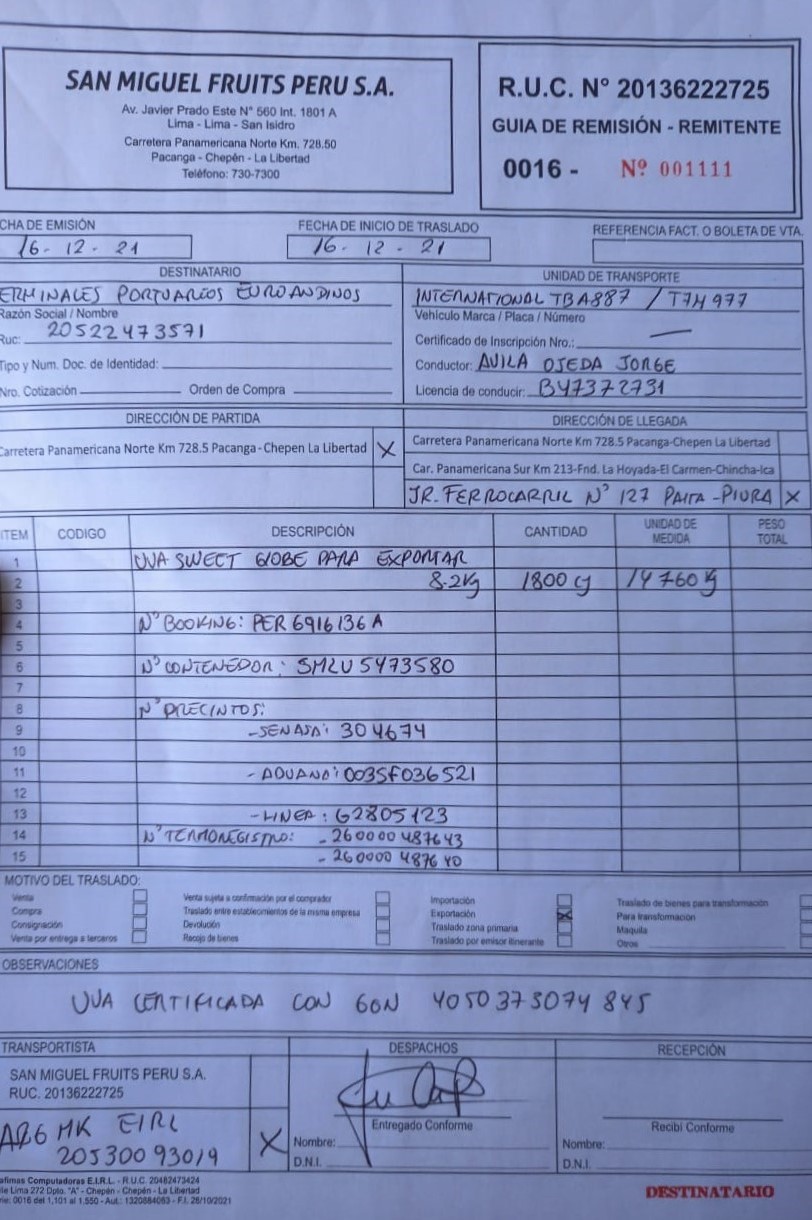 SAN MIGUEL FRUITS PERU S.A.
Av. Javier Prado Este N° 560 Int. 1801 A
Lima - Lima - San Isidro
Carretera Panamericana Norte Km. 728.50
Pacanga - Chepén - La Libertad
Teléfono: 730-7300
R.U.C. N° 20136222725
GUIA DE REMISIÓN - REMITENTE
0016 - Nº 001111
CHA DE EMISIÓN
16-12-21
FECHA DE INICIO DE TRASLADO
16-12-21
REFERENCIA FACT. O BOLETA DE VTA.
DESTINATARIO
ERMINALES PORTUARIOS EUROANDINOS
Razón Social / Nombre
Ruc: 20522473571
Tipo y Num. Doc. de Identidad:
Nro. Cotización Orden de Compra
UNIDAD DE TRANSPORTE
INTERNATIONAL TBA887 / T7H977
Vehículo Marca / Placa / Número
Certificado de Inscripción Nro.: —
Conductor: AVILA OJEDA JORGE
Licencia de conducir: B47372731
DIRECCIÓN DE PARTIDA
Carretera Panamericana Norte Km 728.5 Pacanga-Chepen La Libertad X
DIRECCIÓN DE LLEGADA
Carretera Panamericana Norte Km 728.5 Pacanga-Chepen La Libertad
Car. Panamericana Sur Km 213-Fnd. La Hoyada-El Carmen-Chincha-Ica
JR. FERROCARRIL N° 127 PAITA-PIURA X
ITEM CODIGO DESCRIPCIÓN CANTIDAD UNIDAD DE MEDIDA PESO TOTAL
1 UVA SWEET GLOBE PARA EXPORTAR
2 8.2Kg 1800 cj 14760 Kg
3
4 N° BOOKING: PER6916136A
5
6 N° CONTENEDOR: SMLU5473580
7
8 N° PRECINTOS:
9 -SENASA: 304674
10
11 - ADUANA: 0035F036521
12
13 -LINEA: 62805123
14 N° TERMOREGISTRO: - 260000487643
15 - 260000487640
MOTIVO DEL TRASLADO:
Venta
Compra
Consignación
Venta por entrega a terceros
Venta sujeta a confirmación por el comprador
Traslado entre establecimientos de la misma empresa
Devolución
Recojo de bienes
Importación
Exportación X
Traslado zona primaria
Traslado por emisor itinerante
Traslado de bienes para transformación
Para transformación
Maquila
Otros
OBSERVACIONES
UVA CERTIFICADA CON GGN 4050373074845
TRANSPORTISTA
SAN MIGUEL FRUITS PERU S.A.
RUC. 20136222725
MK EIRL X
20530093019
DESPACHOS
Entregado Conforme
Nombre:
D.N.I.
RECEPCIÓN
Recibí Conforme
Nombre:
D.N.I.
afimas Computadoras E.I.R.L. - R.U.C. 20482473424
lle Lima 272 Dpto. "A" - Chepén - Chepén - La Libertad
rie: 0016 del 1,101 al 1,550 - Aut.: 1320884083 - F.I. 28/10/2021
DESTINATARIO